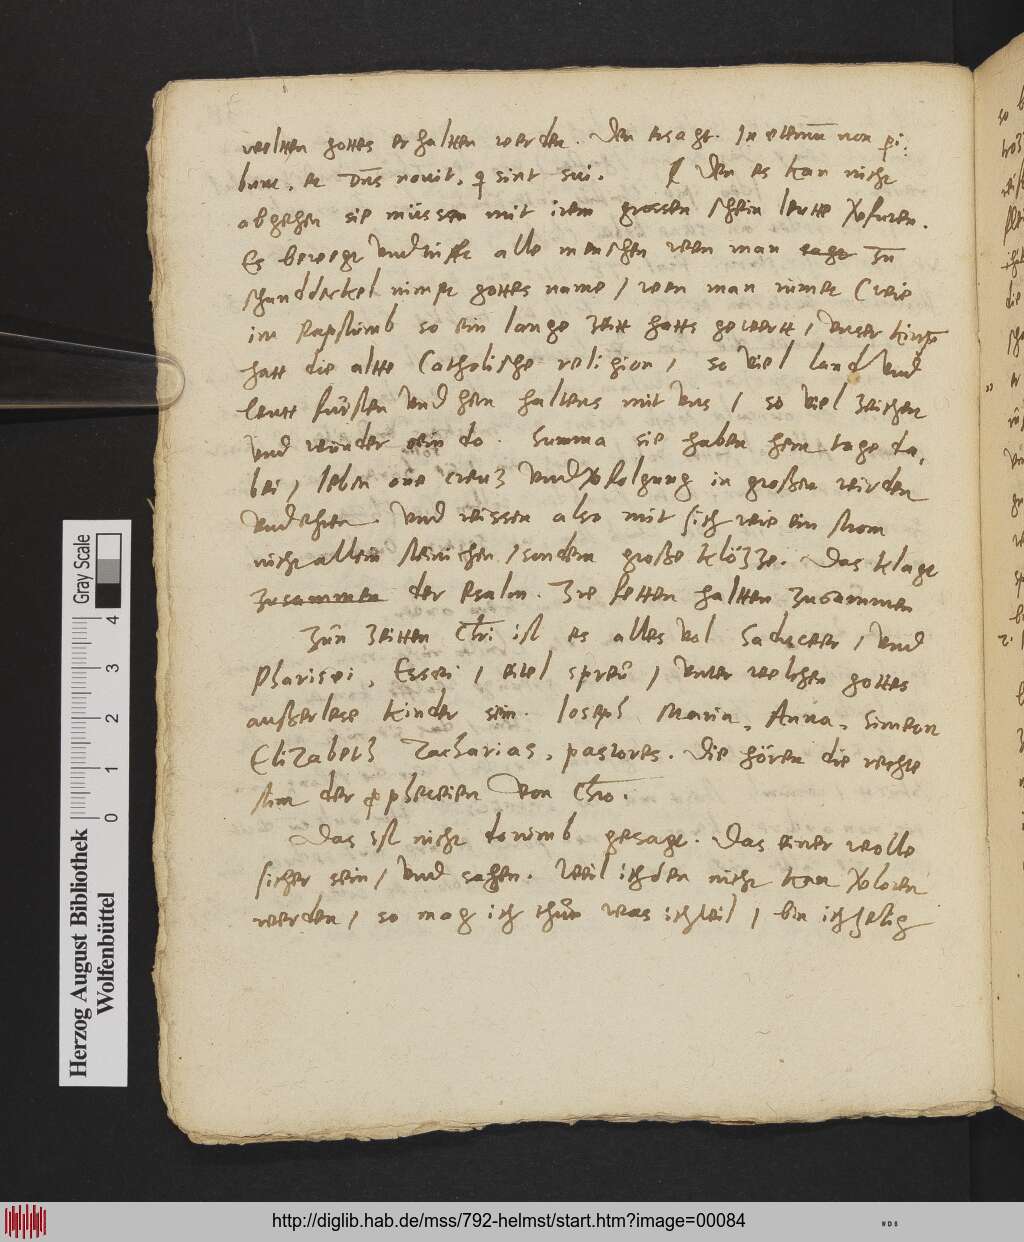 weltten gottes erhaltten werden. Den ersagt. In eternū non pi:
bunt, et Dn̄s novit, q sint sui. Den es kan nicht
abgehen sie müssen mit irem grossen schein leutte x̄furen.
Es bewegt vnd alle menschen wen man sagt zu
schanddeckel nimpt gottes name / wen man rümet (wie
im Papstumb so ein lange zeitt hatts gewertt / vnser
hatt die altte Catholische religion, so viel land vnd
leutt fürsten vnd hern haltens mit vns / so viel zeichen
vnd wunder sein do. Summa sie haben hern tage da,
bei / leben one creuz vnd x̄folgung in großen wirden
vnd ehren. Vnd reissen also mit sich wie ein strom
nicht allein steinichen / sondern große klözze. Das klagt
zusammen der Psalm. Die fetten haltten zusammen
Zun zeitten Chri ist es alles vol Saduceer / vnd
Pharisei, Essei / eitel spreu / vnter welchen gottes
außerlese kinder sein. Joseph Maria, Anna, Simeon
Elizabeth Zacharias, pastores. Die hören die rechte
stim der ꝓpheceien von Chro.
Das ist nicht dorumb gesagt. Das einer wolle
sicher sein / vnd sagen. Weil ich den nicht kan x̄loren
werden / so mag ich thun was ich wil / bin ich selig
Herzog August Bibliothek
Wolfenbüttel
Gray Scale
0 1 2 3 4
http://diglib.hab.de/mss/792-helmst/start.htm?image=00084
WDB